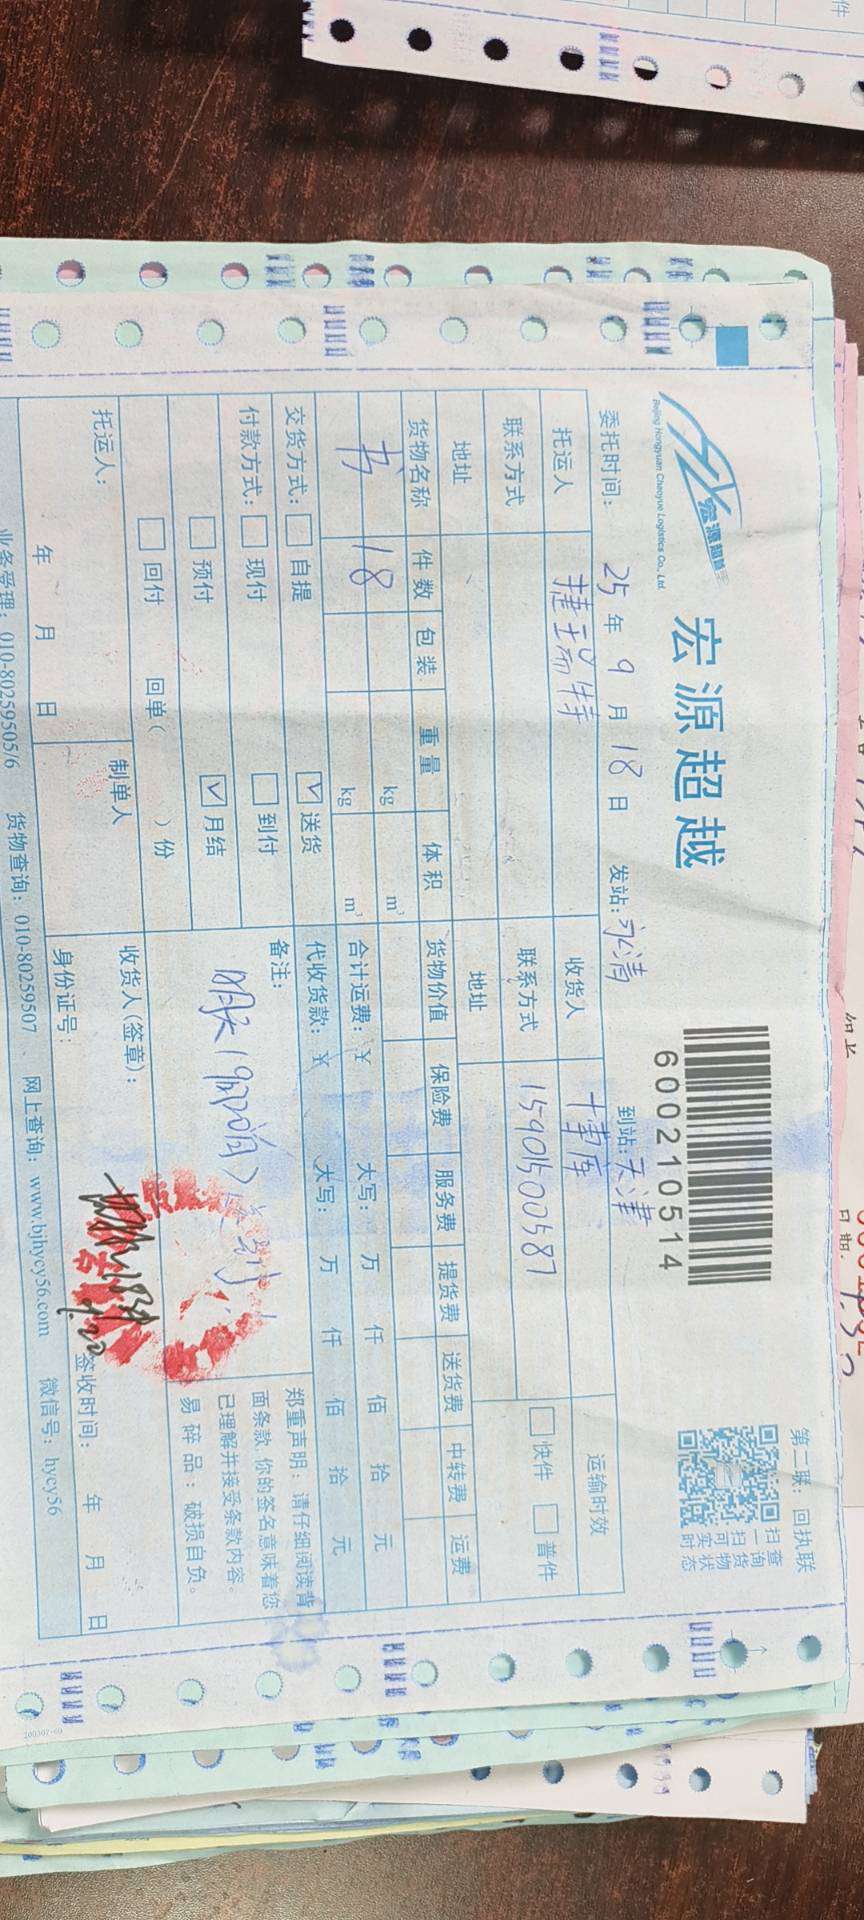 宏源超越
Beijing Hongyuan Chaoyue Logistics Co., Ltd
宏源超越
600210514
第二联：回执联
扫一扫 查询货物实时状态
委托时间：25年9月18日 发站：永清 到站：天津
托运人 捷瑞特 收货人 博库 运输时效
联系方式 联系方式 15901500587 快件 普件
地址 地址
货物名称 件数 包装 重量 体积 货物价值 保险费 服务费 提货费 送货费 中转费 运费
书 18 kg m³
kg m³ 合计运费：￥ 大写： 万 仟 佰 拾 元
交货方式： 自提 ☑送货 代收货款：￥ 大写： 万 仟 佰 拾 元
付款方式： 现付 到付 备注：
预付 ☑月结
回付 回单( )份
郑重声明：请仔细阅读背
面条款，你的签名意味着您
已理解并接受条款内容。
易碎品：破损自负。
托运人： 制单人 收货人(签章)：
9.22
年 月 日 身份证号： 签收时间： 年 月 日
业务受理：010-80259505/6 货物查询：010-80259507 网上查询：www.bjhycy56.com 微信号：hycy56